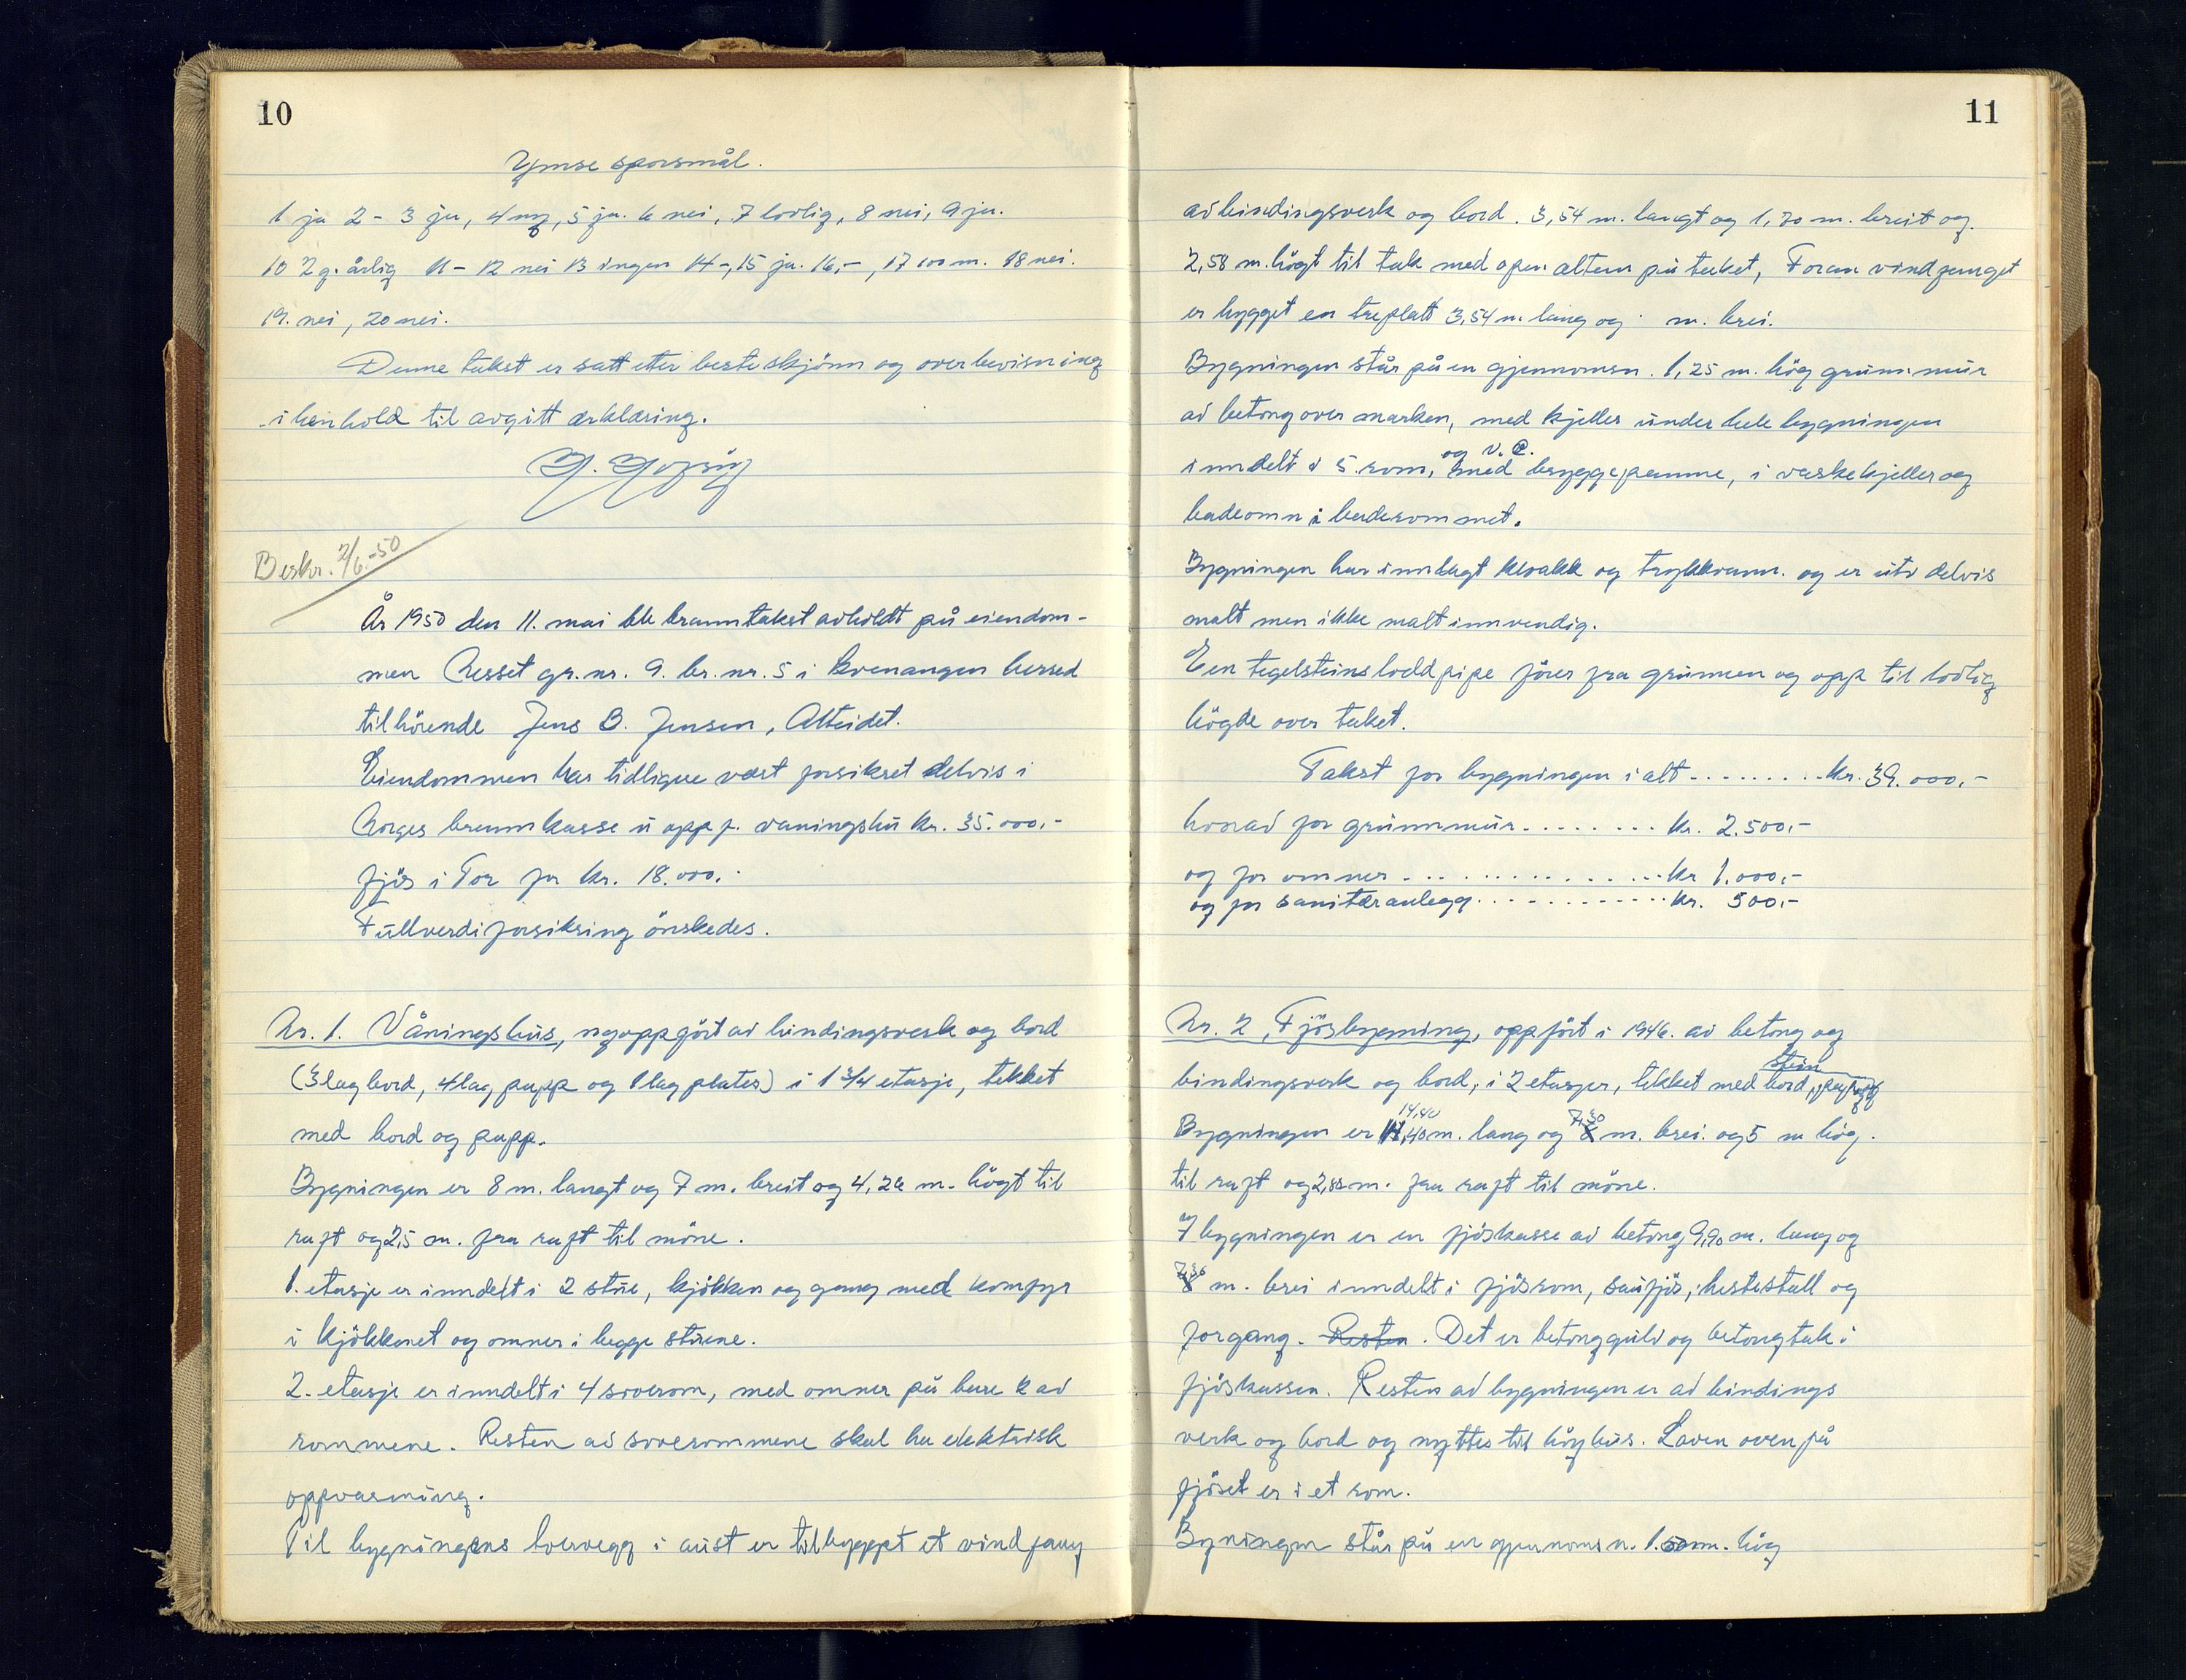 10
Ymse spørsmål.
1 ja 2 - 3 ja, 4 ny, 5 ja. 6 nei, 7 lovlig, 8 nei, 9 ja.
10 2 g. årlig 11 - 12 nei 13 ingen 14 -, 15 ja. 16,- , 17 100 m. 18 nei.
19. nei, 20 nei.
Denne takst er satt etter beste skjönn og overbevisning
i henhold til avgitt ærklæring.
Beskr. 2/6.-50
År 1950 den 11. mai ble branntakst avholdt på eiendom-
men Nesset gr. nr. 9. br. nr. 5 i Kvenangen herred
tilhörende Jens B. Jensen, Alteidet.
Eiendommen har tidligere vært forsikret delvis i
Norges brannkasse u opp f. våningshus kr. 35.000,-
fjös i Tor for kr. 18.000,-
Fullverdiforsikring önskedes.
Nr. 1. Våningshus, nyoppfört av bindingsverk og bord
(3 lag bord, 4 lag papp og 1 lag plater) i 1 3/4 etasje, tekket
med bord og papp.
Bygningen er 8 m. langt og 7 m. breit og 4,26 m. högt til
raft og 2,5 m. fra raft til möne.
1. etasje er inndelt i 2 stue, kjökken og gang med komfyr
i kjökkenet og omner i begge stuene.
2. etasje er inndelt i 4 soverom, med omner på bare 2 av
rommene. Resten av soverommene skal ha elektrisk
oppvarming.
Til bygningens tvervegg i aust er tilbyggpt et vindfang
11
av bindingsverk og bord. 3,54 m. langt og 1,70 m. breit og
2,58 m. högt til tak med open altan på taket, Foran vindfanget
er bygget en treplatt 3,54 m. lang og m. brei.
Bygningen står på en gjennomsn. 1,25 m. hög grunnmur
av betong over marken, med kjeller under hele bygningen
og V.C.
inndelt i 5 rom, med bryggepanne, i vaskekjeller og
badeomn i baderommet.
Bygningen har innlagt kloakk og trykkvann. og er utv delvis
malt men ikke malt innvendig.
Een tegelsteins loddpipe förer fra grunnen og opp til lovlig
högde over taket.
Takst for bygningen i alt ......... kr. 39.000,-
hvorav for grunnmur........ kr. 2.500,-
og for omner ............... kr 1.000,-
og for sanitæranlegg............ kr. 500,-
Nr. 2, Fjösbygning, oppfört i 1946. av betong og
stein
bindingsverk og bord, i 2 etasjer, tekket med bord,
14,40 7,30
Bygningen er 11,40 m. lang og 8 m. brei. og 5 m hög.
til raft og 2,88 m. fra raft til möne.
I bygningen er en fjöskasse av betong 9,90 m. lang og
7,30
8 m. brei inndelt i fjösrom, saufjös, hestestall og
forgang. Resten. Det er betonggulv og betongtak i
fjöskassen. Resten av bygningen er av bindings
verk og bord og nyttes til höyhus. Laven oven på
fjöset er i et rom.
Bygningen står på en gjennomsn. 1.50 m. hög